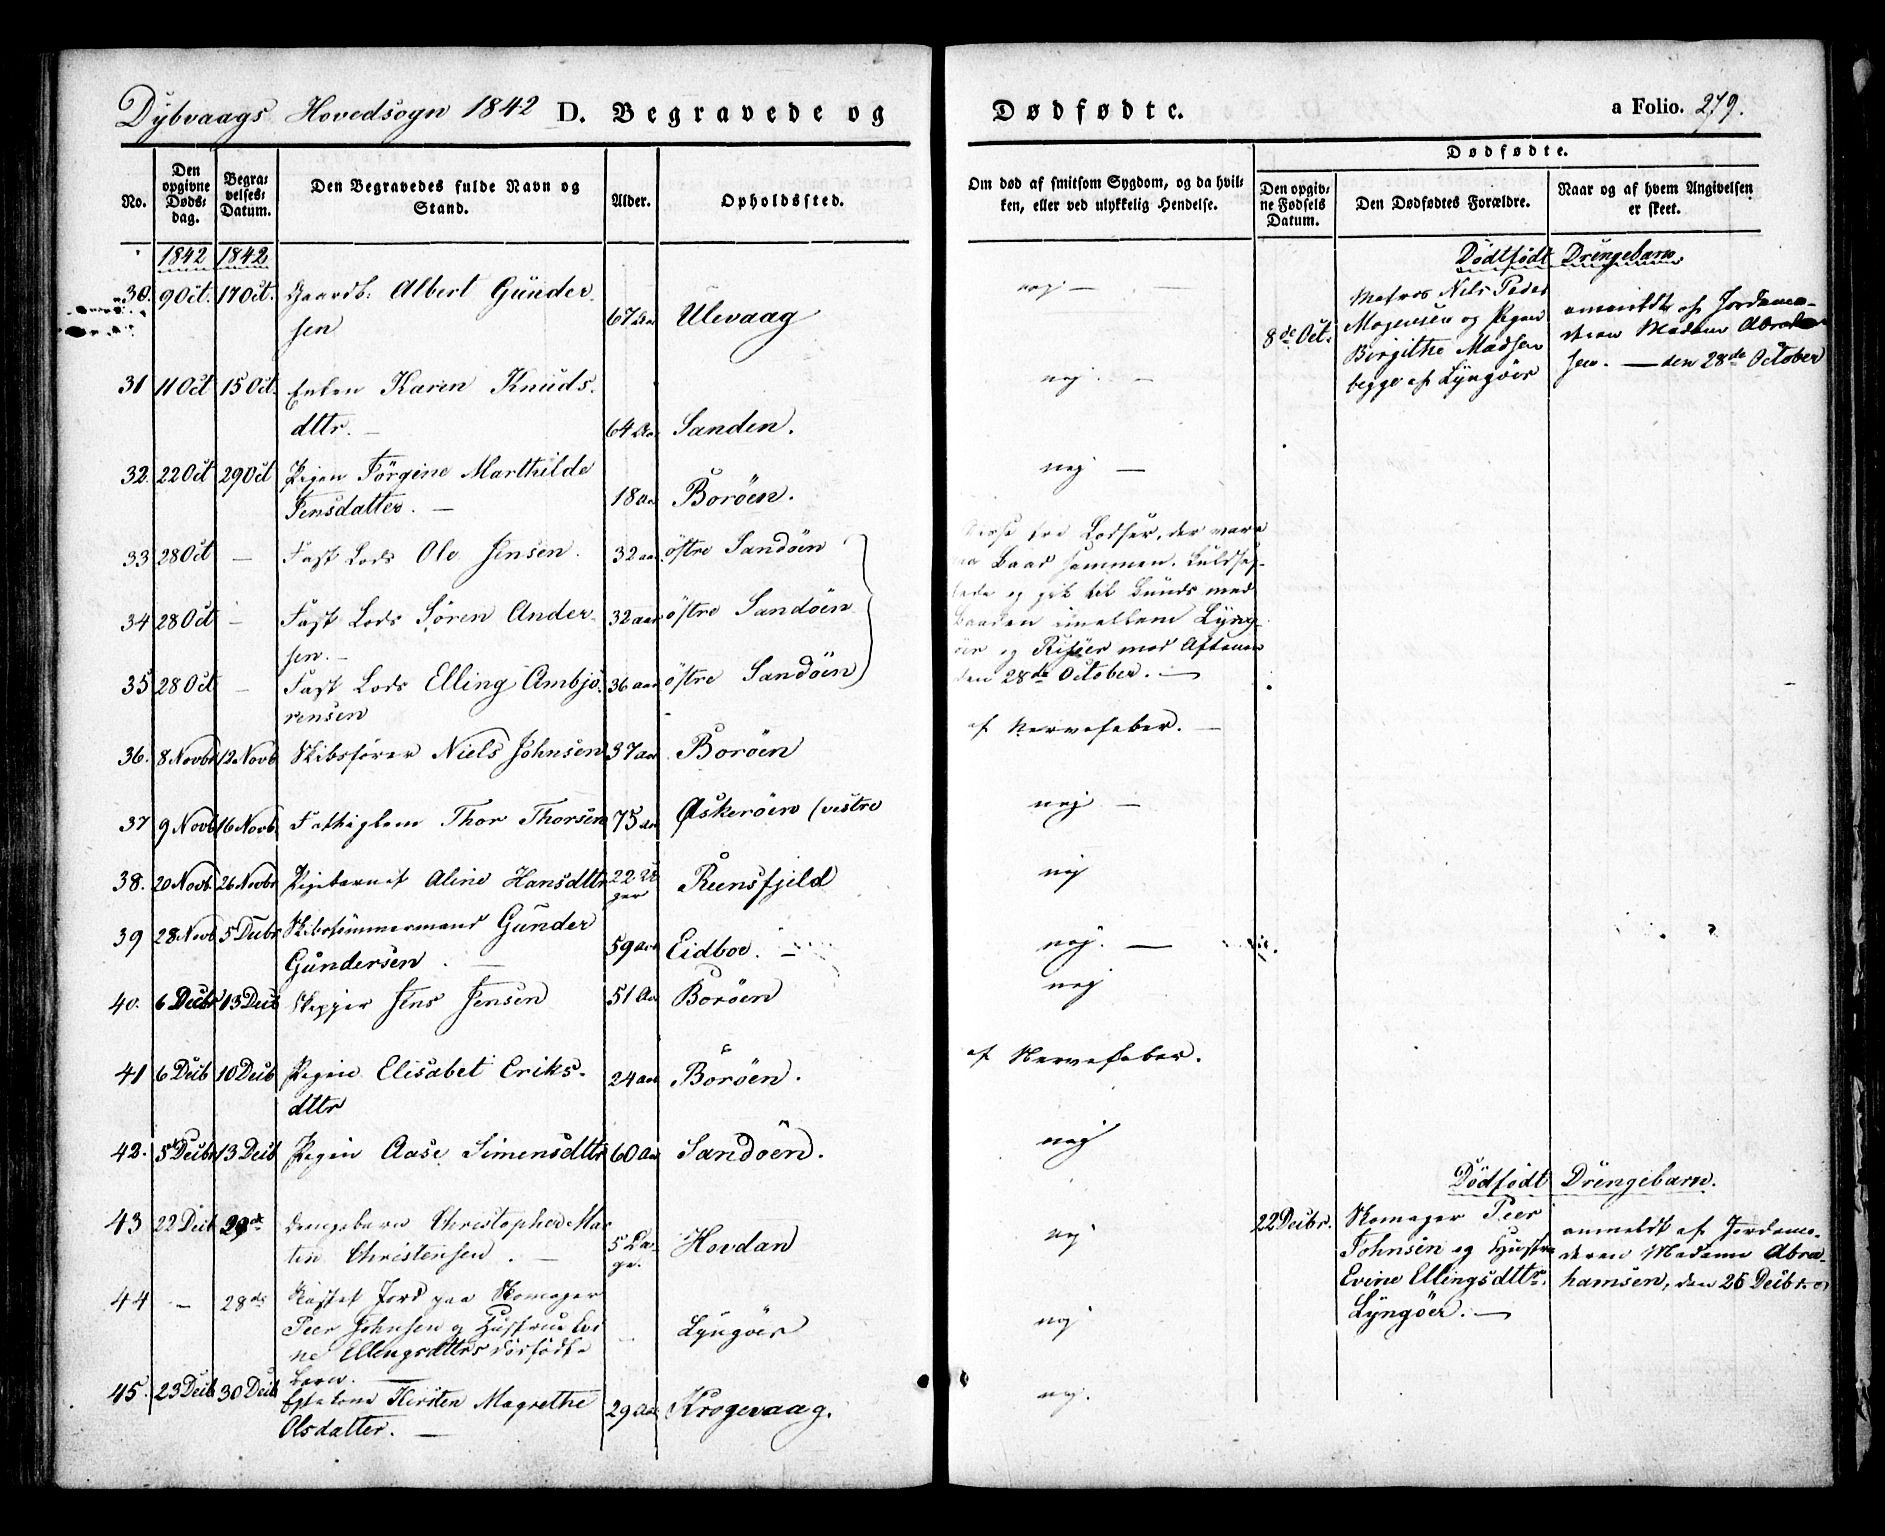 Dybvaags Hovedsogn 1842 D. Begravede og Dødfødte. a Folio. 279.
No.
Den opgivne Døds-dag.
Begra-velses-Datum.
Den Begravedes fulde Navn og Stand.
Alder.
Opholdssted.
Om død af smitsom Sygdom, og da hvil-
ken, eller ved ulykkelig Hendelse.
Dødfødte.
Den opgiv-
ne Fødsels
Datum.
Den Dødfødtes Forældre.
Naar og af hvem Angivelsen
er skeet.
1842 1842
30. 9 Oct. 17 Oct. Gaardb: Albert Gunder-
sen 67 Aar Ulevaag nej —
31 11 Oct 15 Oct. Enken Karen Knuds-
dttr. — 64 Aar Sanden. nej. —
32. 22 Oct 29 Oct Pigen Jörgine Marthilde
Jensdatter. — 18 Aar Boröen. nej —
33 28 Oct — Fast Lods Ole Jensen. 32 aar östre Sandöen
34 28 Oct — Fast Lods Sören Ander-
sen. — 32 aar östre Sandöen
35 28 Oct — Fast Lods Elling Ambjö-
rensen 36 aar östre Sandöen
Disse tre Lodser, der vare
paa Baad sammen,
og gik til Bunds med
Baaden imellem Lyng-
öer og Risöer mod Aftenen
den 28de October. —
36. 8 Novbr 12 Novb Skibsfører Niels Johnsen 37 Aar Boröen af Nervefeber. —
37 9 Novb 16 Novb Fattiglem Thor Thorsen 75 Aar Askeröen (vestre nej —
38. 20 Novb. 26 Novbr Pigebarnet Aline Hansdttr 22 U-
ger Reensfjeld nej
39 28 Novb 5 Decbr Skibstimmermand Gunder
Gundersen. — 59 Aar Eidboe. — nej. —
40. 6 Decbr 13 Decb Skipper Jens Jensen 51 Aar Boröen nej
41 6 Decb 10 Decb Pigen Elisabet Eriks-
dttr 24 aar Boröen. af Nervefeber.
42. 5 Decbr 13 Decb Pigen Aase Simensdttr 60 Aar Sandöen. nej
43 22 Decb 29de Drengebarn Christopher Mar-
tin Christensen. — 5 Da-
ge. Hovdan nej
44 — 28de Kastet Jord paa Skomager
Peer Johnsen og Hustrue Evi-
ne Ellingsdtters dødfødte
Barn. — Lyngöer nej
45. 23 Decb 30 Decb Kirsten Magrethe
Olsdatter. — 29 Aar Krogevaag. nej.
Dödfödt Drengebarn
8de Oct. Matros Nils Peder
Mogensen og Pigen
Birgithe Madsen
begge af Lyngöer
anmeldt af Jordemo-
deren Madam Abraham-
sen. — den 28de October
Dödfödt Drengebarn.
22 Decbr. Skomager Peer
Johnsen og Hustru
Evine Ellingsdttr.
Lyngöer. —
anmeldt af Jordemo-
deren Madam Abra-
hamsen, den 26 Decbr.